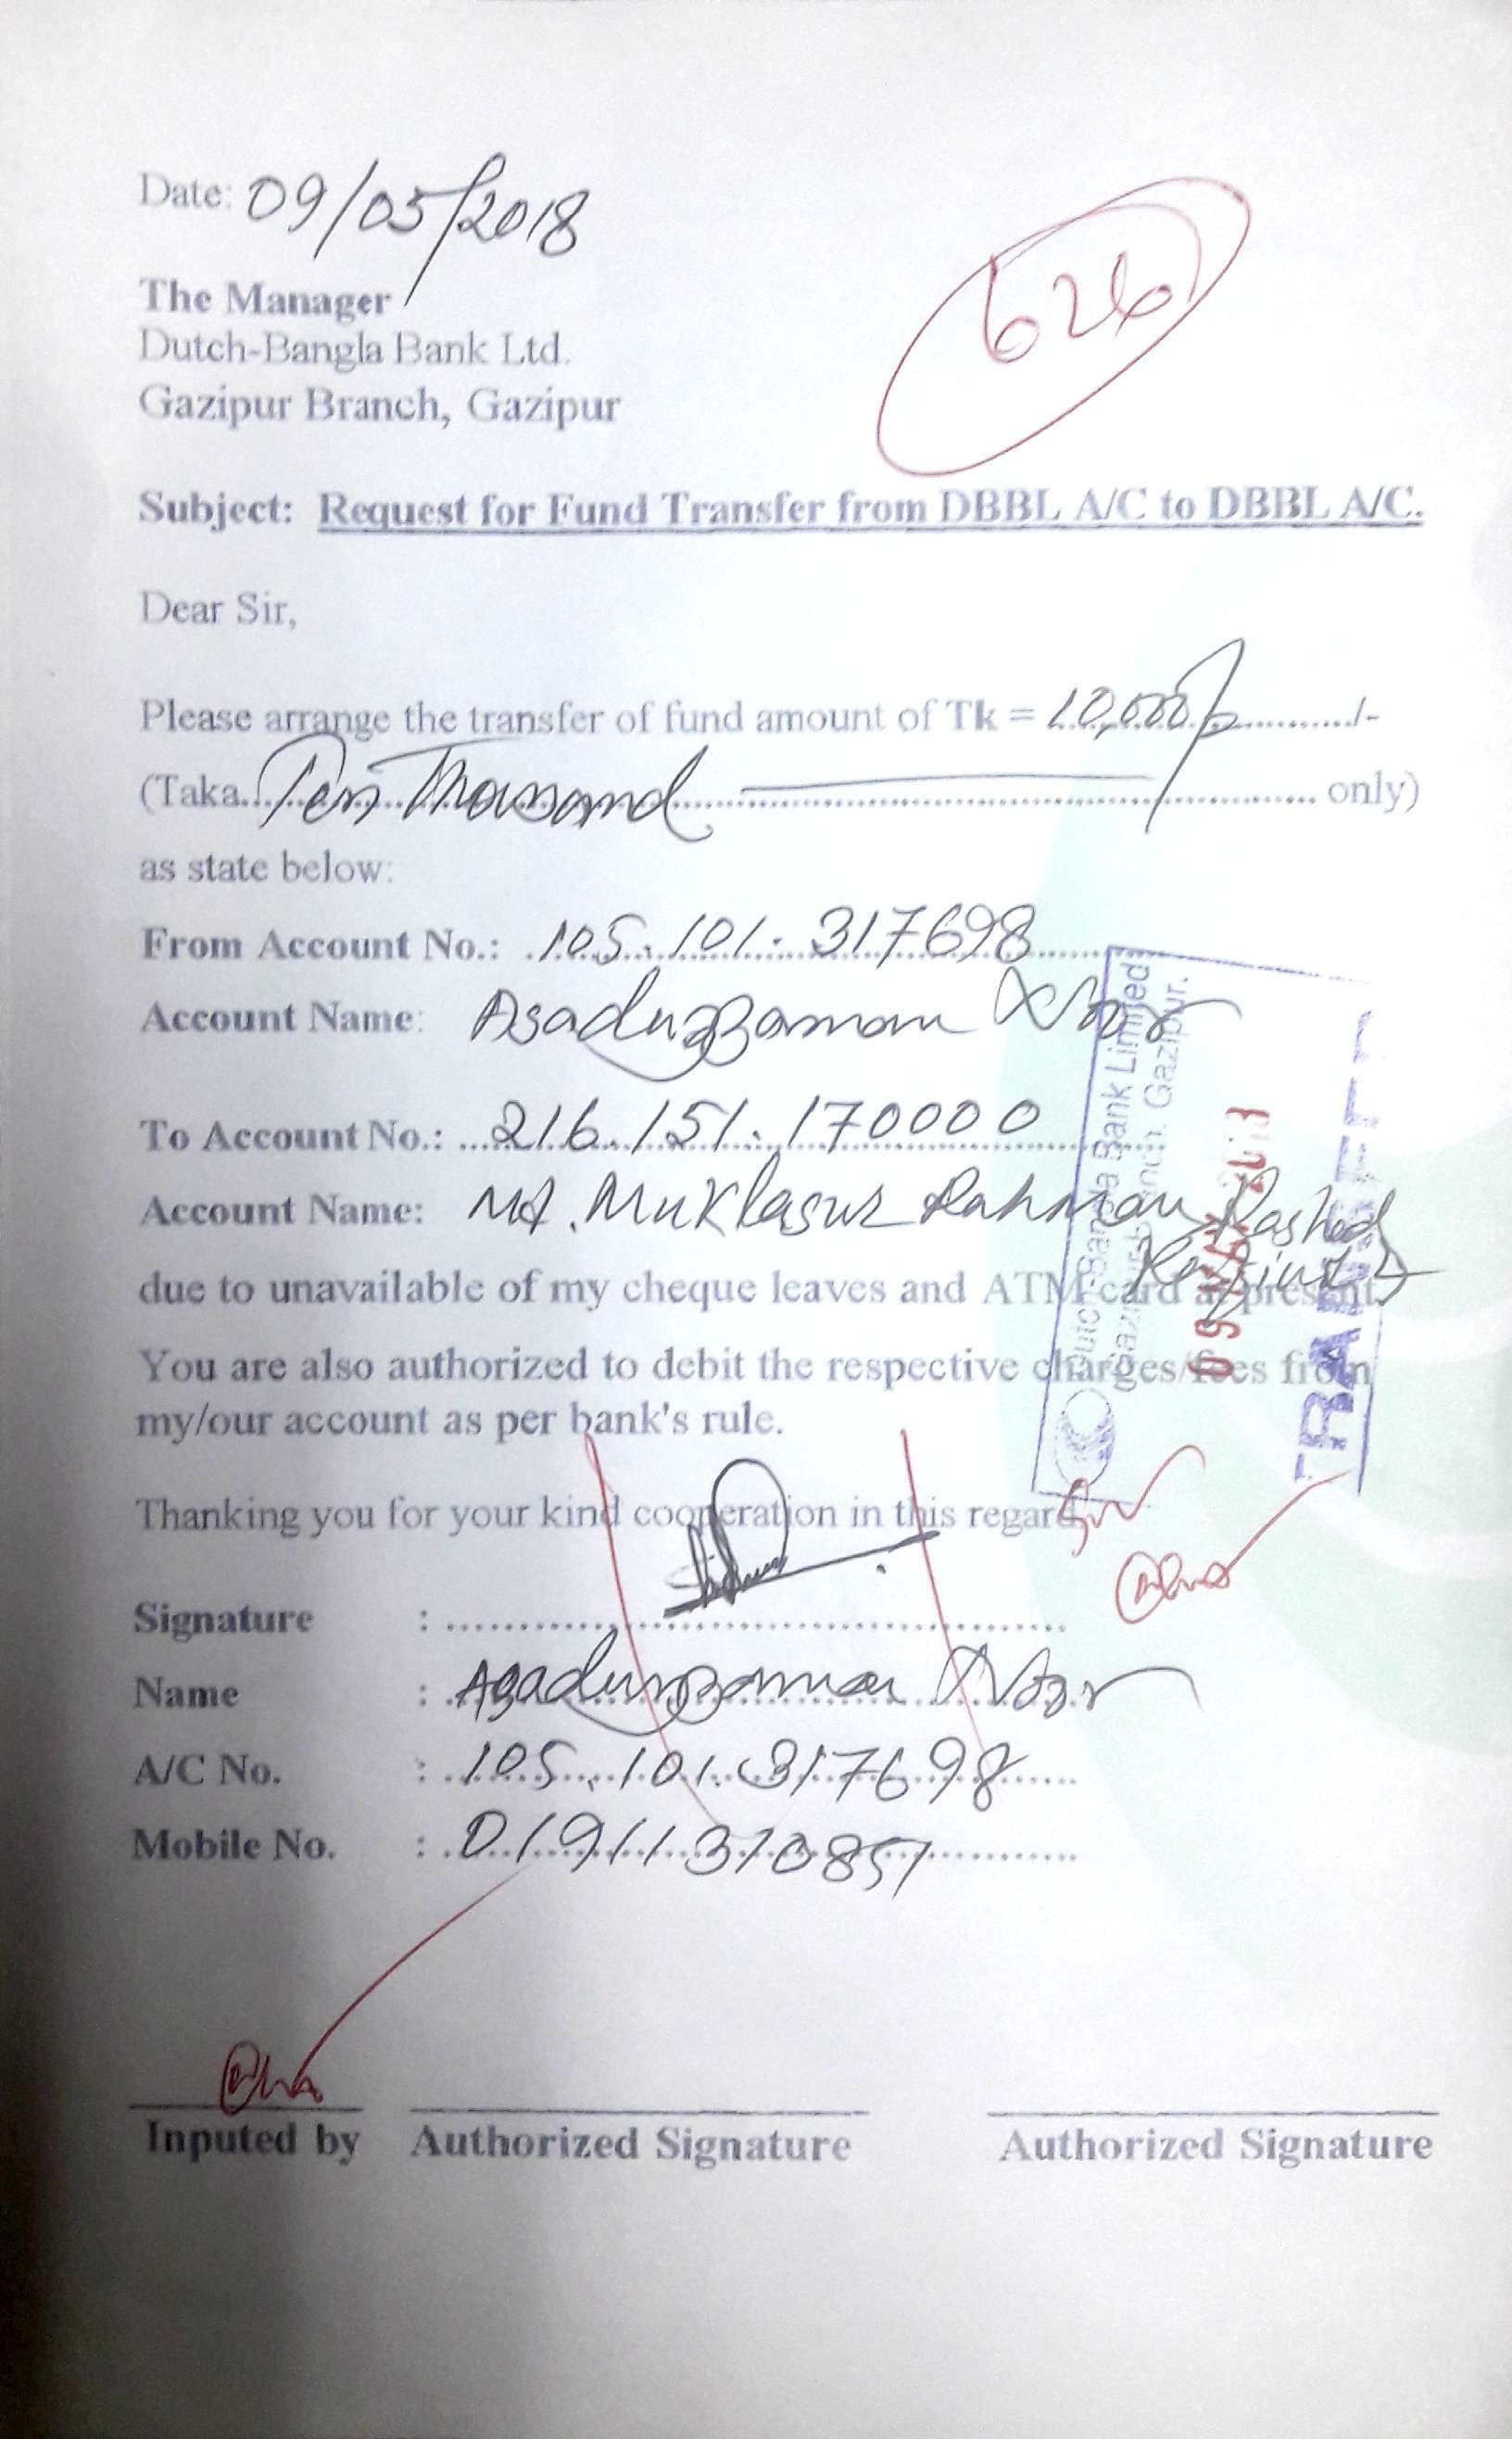 Date: 09/05/2018
626
The Manager
Dutch-Bangla Bank Ltd.
Gazipur Branch, Gazipur
Subject: Request for Fund Transfer from DBBL A/C to DBBL A/C.
Dear Sir,
Please arrange the transfer of fund amount of Tk = 10,000/- /-
(Taka Ten Thousand only)
as state below:
From Account No.: 105.101.317698
Account Name: Asaduzzaman Noor
To Account No.: 216.151.170000
Account Name: Md. Muklasur Rahman Rashed
due to unavailable of my cheque leaves and ATM card at present.
You are also authorized to debit the respective charges/fees from
my/our account as per bank's rule.
Dutch-Bangla Bank Limited
Gazipur Branch, Gazipur.
09 MAY 2018
TRANSFER
Thanking you for your kind cooperation in this regard.
Signature :
Name : Asaduzzaman Noor
A/C No. : 105.101.317698
Mobile No. : 01911310851
Inputed by Authorized Signature Authorized Signature